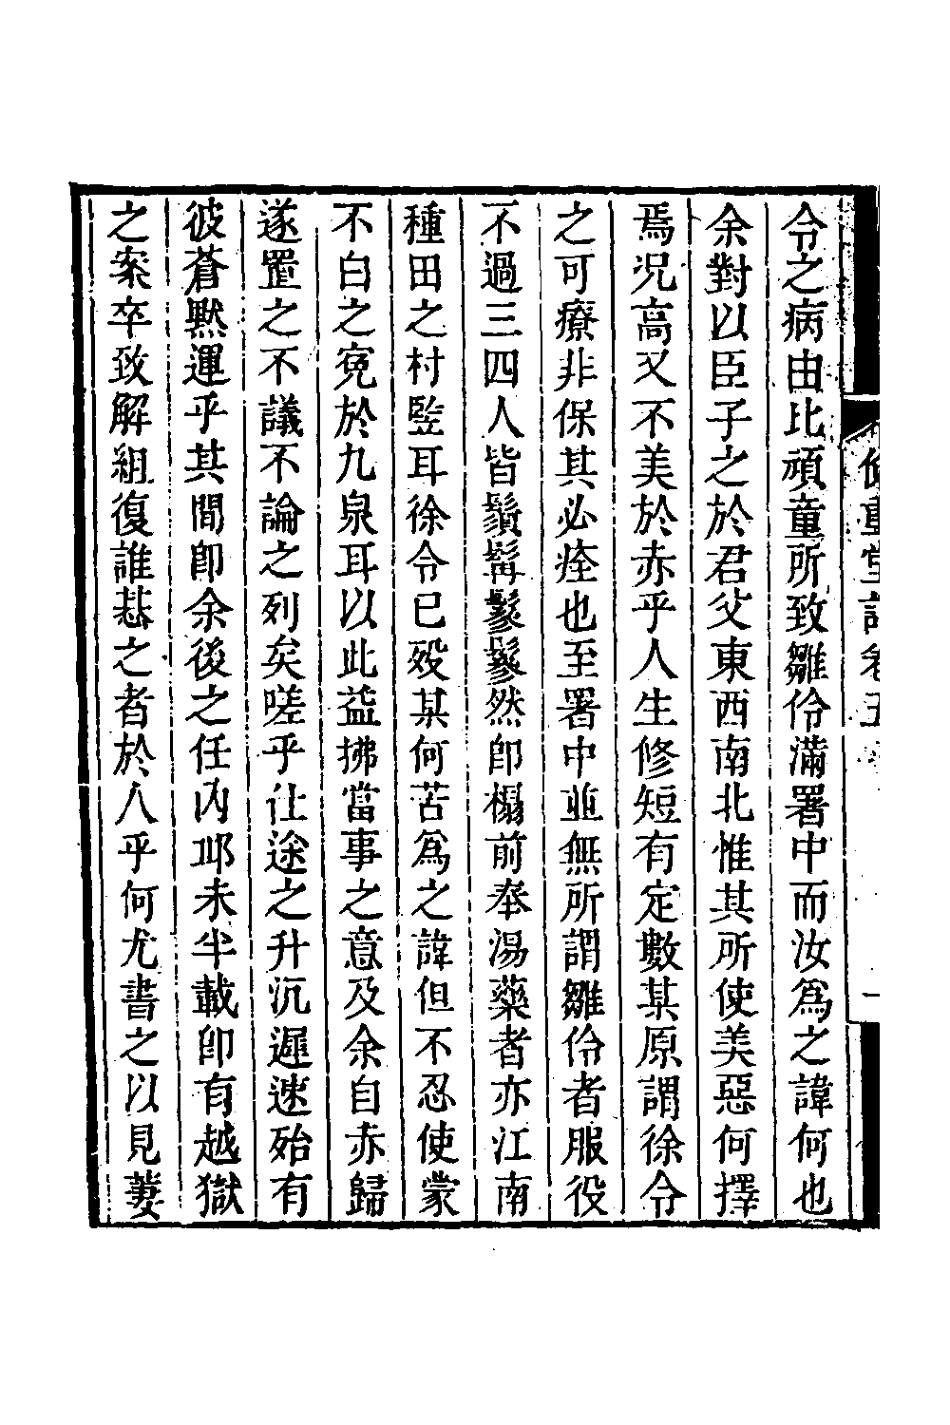 令之病由比頑童所致雛伶滿署中而汝爲之諱何也
余對以臣子之於君父東西南北惟其所使美惡何擇
焉况高又不美於赤乎人生修短有定數某原謂徐令
之可療非保其必痊也至署中並無所謂雛伶者服役
不過三四人皆鬚髯鬖鬖然卽榻前奉湯藥者亦江南
種田之村監耳徐令已歿某何苦爲之諱但不忍使蒙
不白之寃於九泉耳以此益拂當事之意及余自赤歸
遂置之不議不論之列矣嗟乎仕途之升沉遲速殆有
彼蒼默運乎其間卽余後之任內邱未半載卽有越獄
之案卒致解組復誰惎之者於人乎何尤書之以見萋
堂 卷五
一